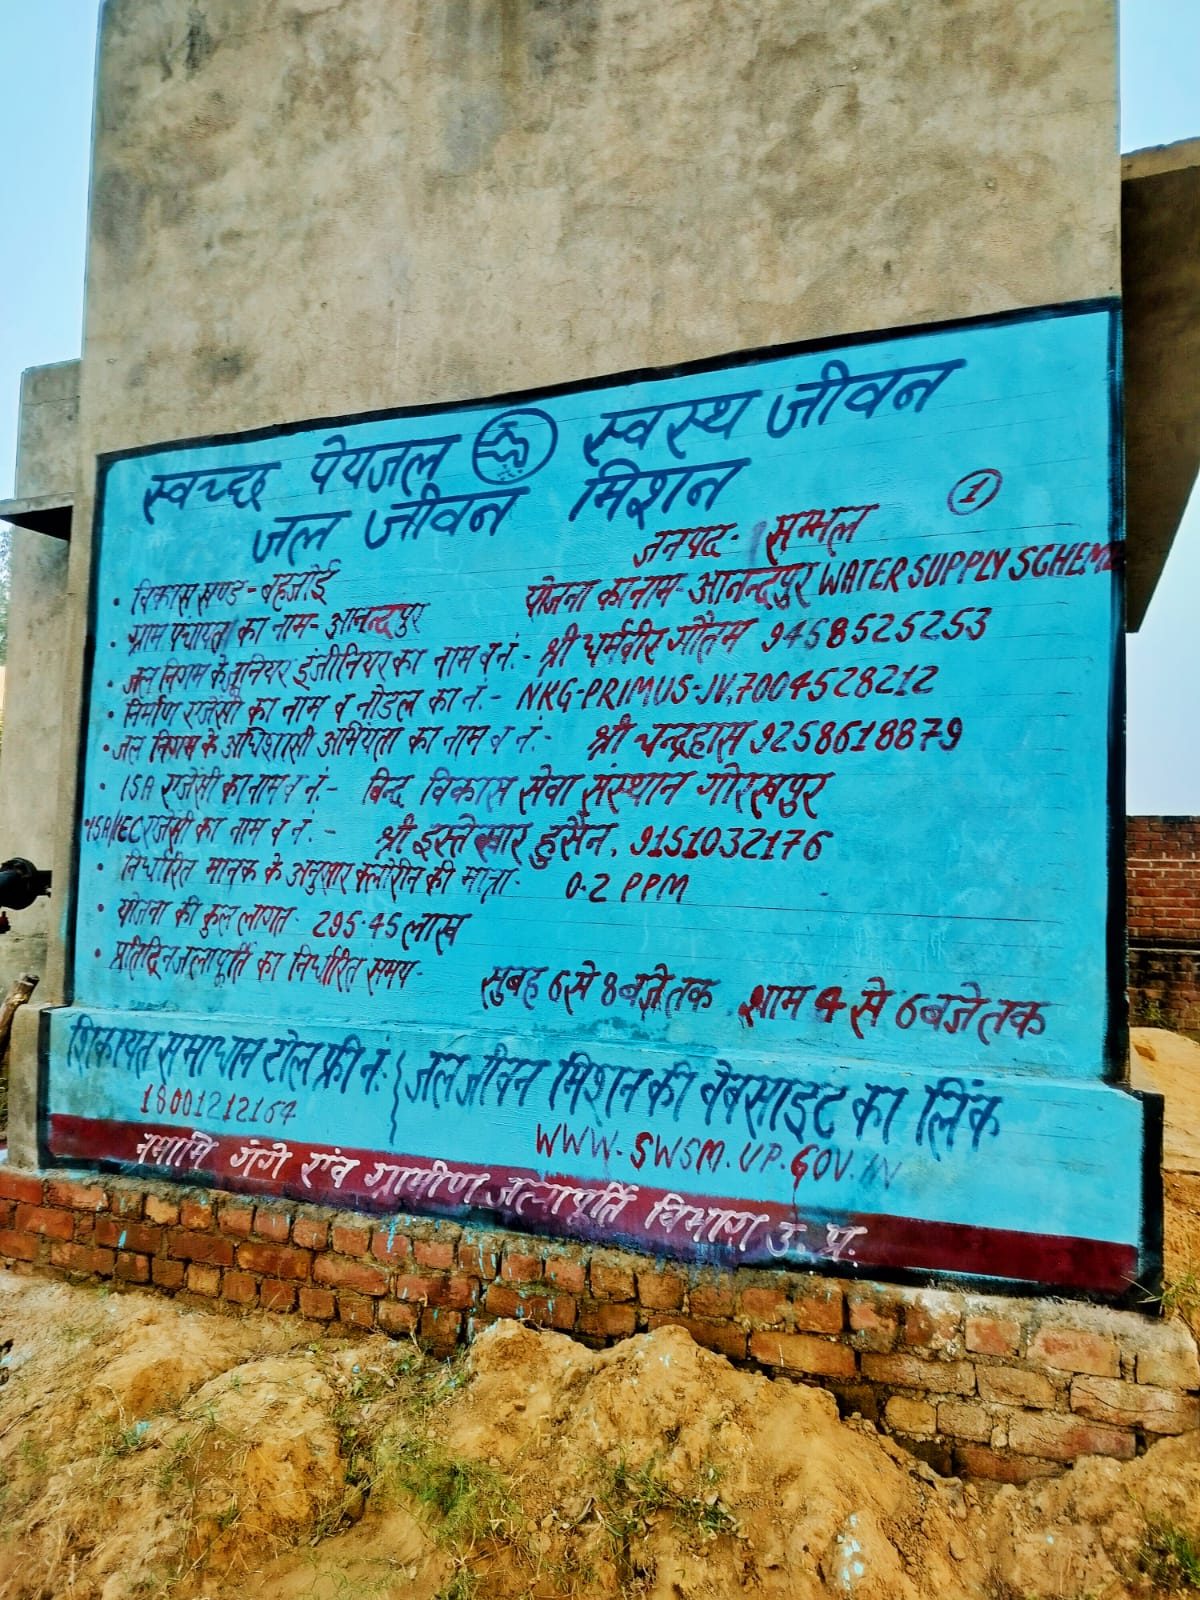 स्वच्छ पेयजल स्वस्थ जीवन
जल जीवन मिशन
1
जनपद- सम्भल
• विकास खण्ड - बहजोई
योजना का नाम- आनन्दपुर WATER SUPPLY SCHEME
• ग्राम पंचायत का नाम- आनन्दपुर
• जल निगम के जूनियर इंजीनियर का नाम व नं.- श्री धर्मवीर गौतम 9458525253
• निर्माण एजेंसी का नाम व नोडल का नं.- NKG-PRIMUS-JV,7004528212
• जल निगम के अधिशासी अभियंता का नाम व नं.- श्री चन्द्रहास 9258618879
• ISA एजेंसी का नाम व नं.- बिन्द विकास सेवा संस्थान गोरखपुर
• ISA/IEC एजेंसी का नाम व नं.- श्री इस्तेखार हुसैन, 9151032176
• निर्धारित मानक के अनुसार क्लोरीन की मात्रा- 0.2 PPM
• योजना की कुल लागत- 295.45 लाख
• प्रतिदिन जलापूर्ति का निर्धारित समय- सुबह 6 से 8 बजे तक शाम 4 से 6 बजे तक
शिकायत समाधान टोल फ्री नं.
18001212164
जल जीवन मिशन की वेबसाइट का लिंक
WWW.SWSM.UP.GOV.IN
नमामि गंगे एंव ग्रामीण जलापूर्ति विभाग उ. प्र.